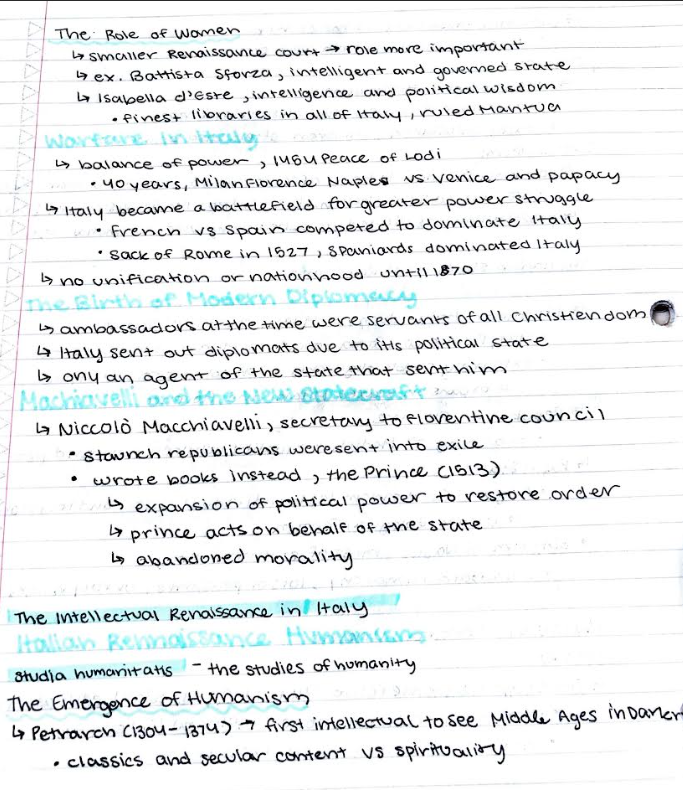 The Role of Women
↳ smaller Renaissance court → role more important
↳ ex. Battista Sforza, intelligent and governed state
↳ Isabella d'Este, intelligence and political wisdom
• finest libraries in all of Italy, ruled Mantua
Warfare in Italy
↳ balance of power, 1454 Peace of Lodi
• 40 years, Milan Florence Naples vs Venice and papacy
↳ Italy became a battlefield for greater power struggle
• French vs Spain competed to dominate Italy
• Sack of Rome in 1527, Spaniards dominated Italy
↳ no unification or nationhood until 1870
The Birth of Modern Diplomacy
↳ ambassadors at the time were servants of all Christiendom
↳ Italy sent out diplomats due to itis political state
↳ ony an agent of the state that sent him
Machiavelli and the New Statecraft
↳ Niccolò Macchiavelli, secretary to Florentine council
• staunch republicans were sent into exile
• wrote books instead, the Prince (1513)
↳ expansion of political power to restore order
↳ prince acts on behalf of the state
↳ abandoned morality
The Intellectual Renaissance in Italy
Italian Rennaissance Humanism
studia humanitatis - the studies of humanity
The Emergence of Humanism
↳ Petrarch (1304-1374) → first intellectual to see Middle Ages in
• classics and secular content vs spirituality